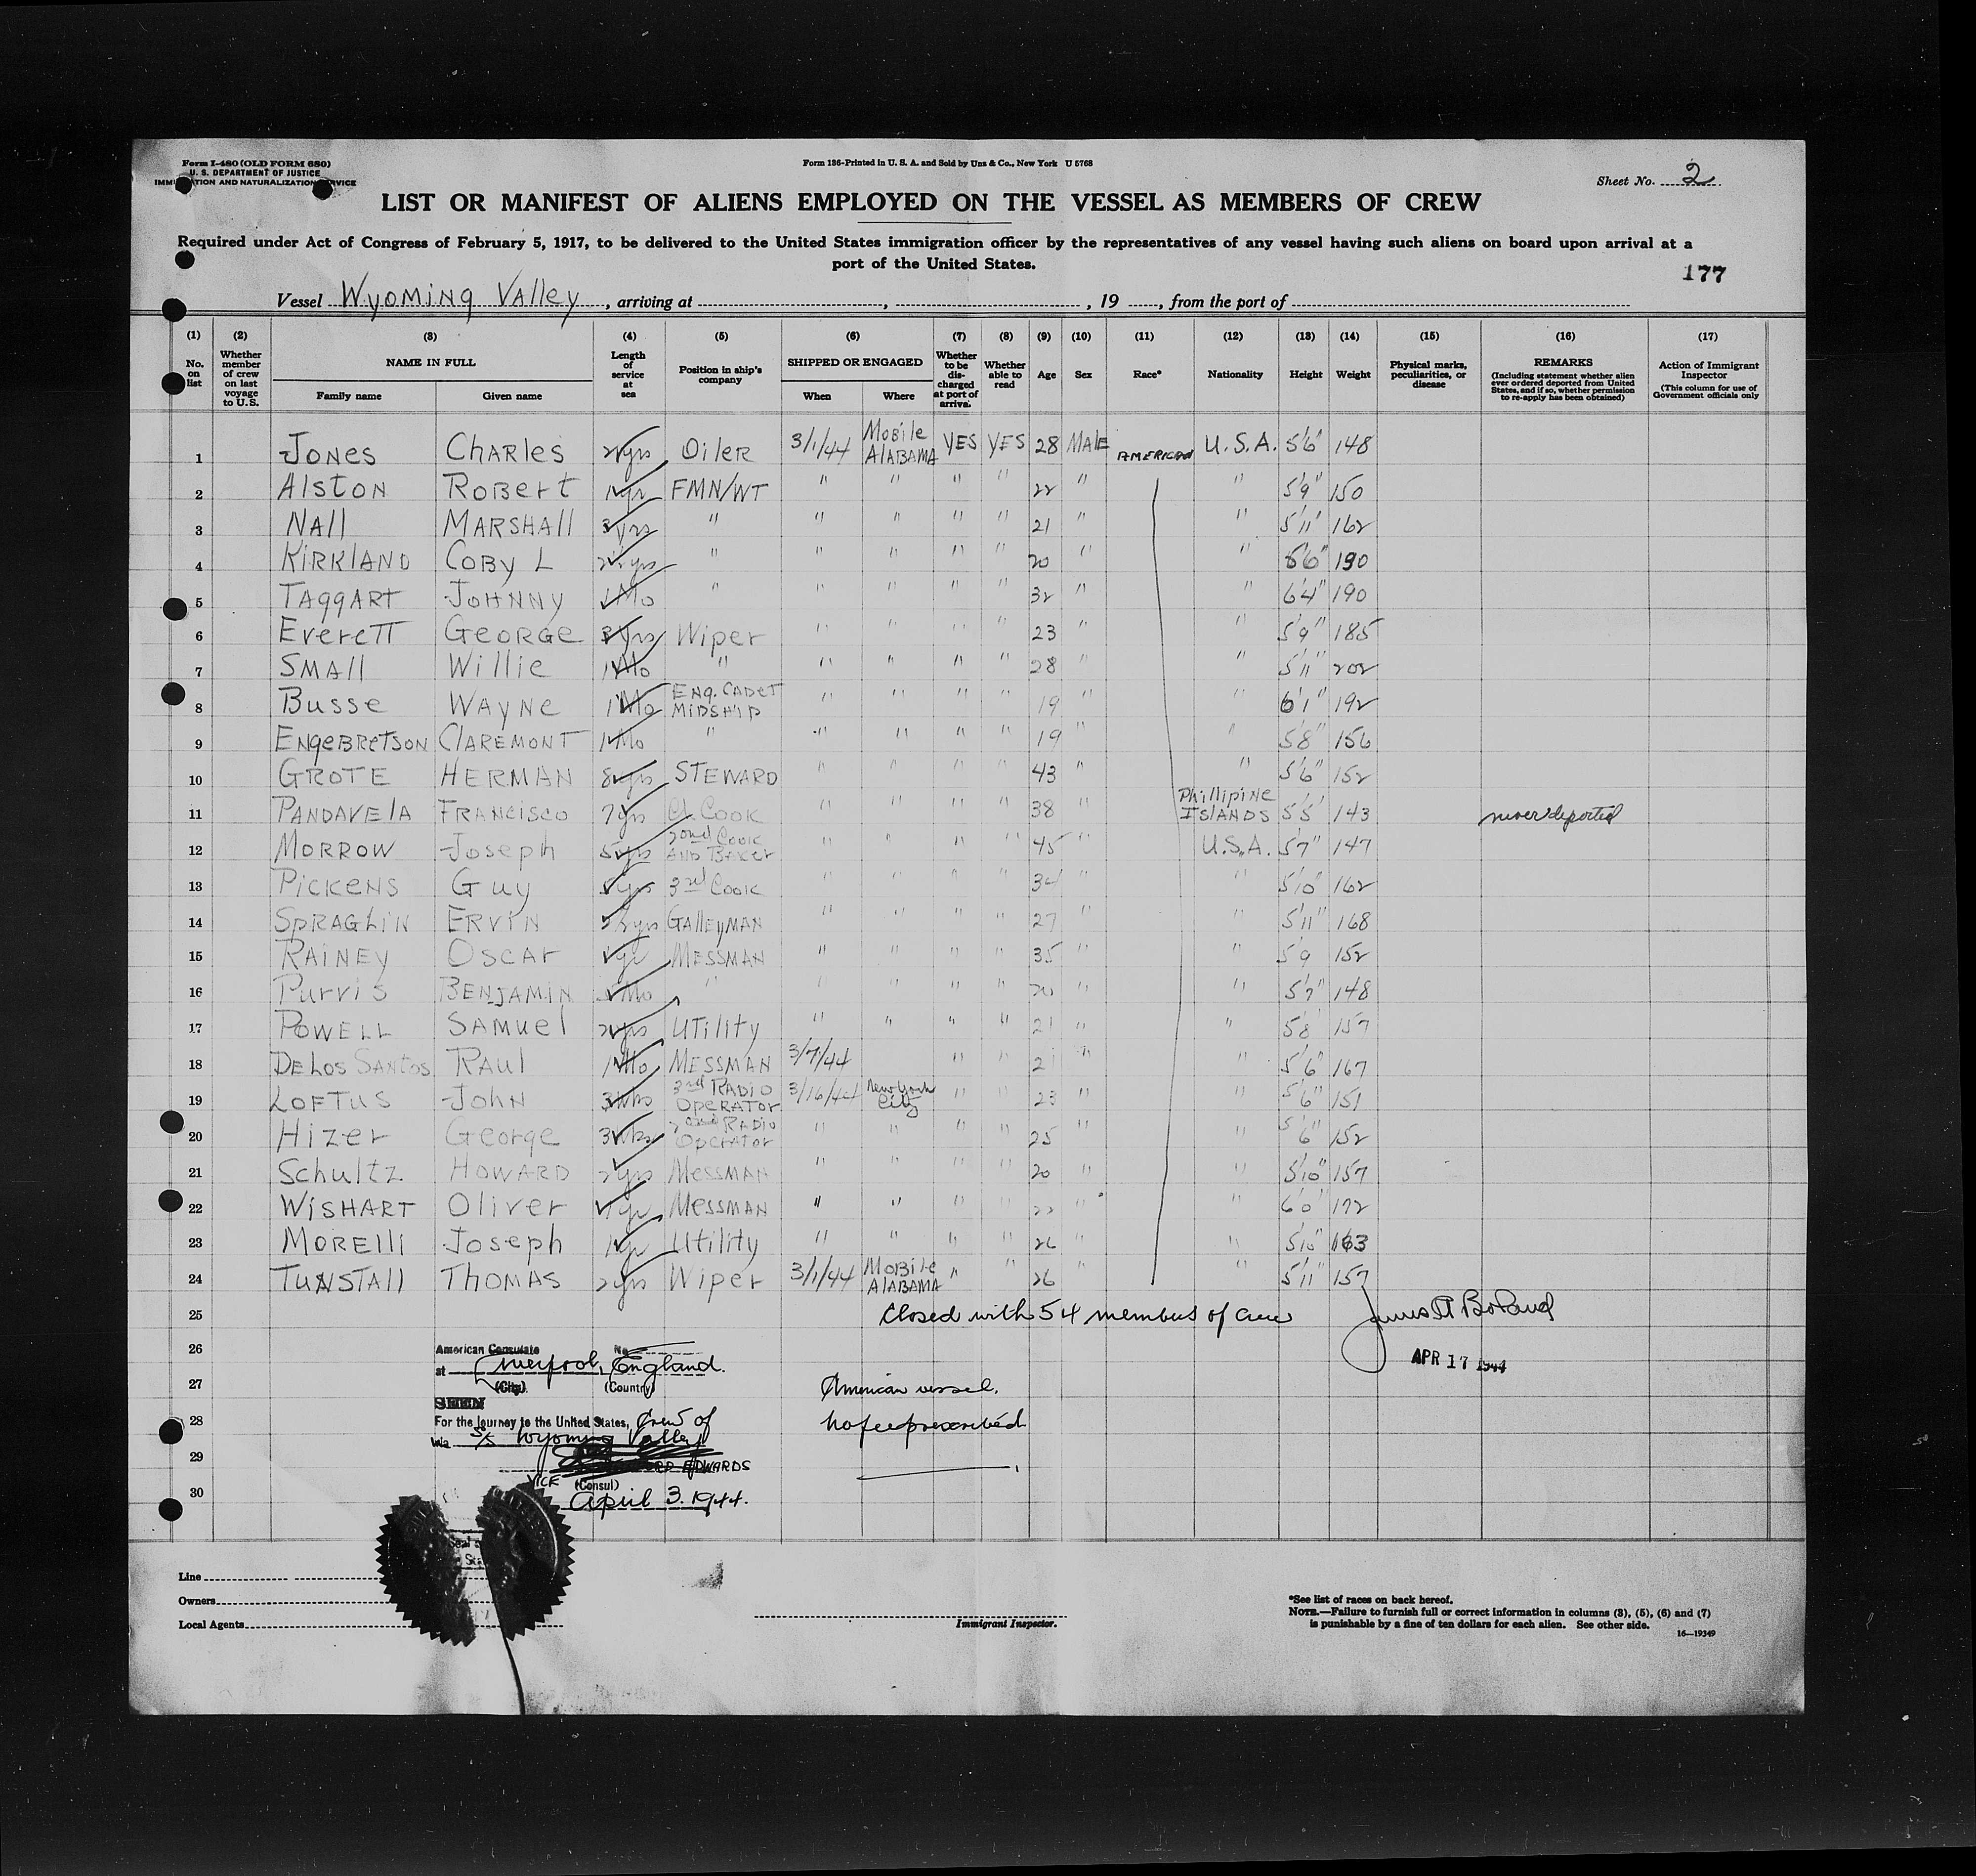 Form I-480 (OLD FORM 680)
U. S. DEPARTMENT OF JUSTICE
IMMIGRATION AND NATURALIZATION SERVICE
Form 136-Printed in U. S. A. and Sold by Unz & Co., New York U 5768
Sheet No. 2
LIST OR MANIFEST OF ALIENS EMPLOYED ON THE VESSEL AS MEMBERS OF CREW
Required under Act of Congress of February 5, 1917, to be delivered to the United States immigration officer by the representatives of any vessel having such aliens on board upon arrival at a
port of the United States.
177
Vessel Wyoming Valley, arriving at , , 19 , from the port of
(1) No. on list (2) Whether member of crew on last voyage to U.S. (3) NAME IN FULL Family name Given name (4) Length of service at sea (5) Position in ship's company (6) SHIPPED OR ENGAGED When Where (7) Whether to be discharged at port of arrival (8) Whether able to read (9) Age (10) Sex (11) Race* (12) Nationality (13) Height (14) Weight (15) Physical marks, peculiarities, or disease (16) REMARKS (Including statement whether alien ever ordered deported from United States, and if so, whether permission to re-apply has been obtained) (17) Action of Immigrant Inspector (This column for use of Government officials only)
1 Jones Charles 2yrs Oiler 3/1/44 Mobile Alabama YES YES 28 Male AMERICAN U.S.A. 5'6" 148
2 Alston Robert 1yr FMN/WT " " " " 22 " " 5'9" 150
3 Nall Marshall 3yrs " " " " " 21 " " 5'11" 162
4 Kirkland Coby L " " " " " 20 " " 5'6" 190
5 Taggart Johnny 1Mo " " " " " 32 " " 6'4" 190
6 Everett George 3yrs Wiper " " " " 23 " " 5'9" 185
7 Small Willie 1Mo " " " " " 28 " " 5'11" 202
8 Busse Wayne 1Mo Eng. Cadet Midship " " " " 19 " " 6'1" 192
9 Engebretson Claremont 1Mo " " " " " 19 " " 5'8" 156
10 Grote Herman 8yrs Steward " " " " 43 " " 5'6" 152
11 Pandavela Francisco 7yrs Ch. Cook " " " " 38 " Phillipine Islands 5'5" 143 never deported
12 Morrow Joseph 5yrs 2nd Cook and Baker " " " " 45 " U.S.A. 5'7" 147
13 Pickens Guy 3rd Cook " " " " 34 " " 5'10" 162
14 Spraglin Ervin Galleyman " " " " 27 " " 5'11" 168
15 Rainey Oscar 1yr Messman " " " " 35 " " 5'9 152
16 Purvis Benjamin " " " " " 20 " " 5'7" 148
17 Powell Samuel 2yrs Utility " " " " 21 " " 5'8" 157
18 De Los Santos Raul 1Mo Messman 3/7/44 " " 21 " " 5'6" 167
19 Loftus John 3wks 3rd Radio Operator 3/16/44 New York City " " 23 " " 5'6" 151
20 Hizer George 3wks 2nd Radio Operator " " " " 25 " " 5'6" 152
21 Schultz Howard 2yrs Messman " " " " 20 " " 5'10" 157
22 Wishart Oliver 1yr Messman " " " " " " 6'0" 172
23 Morelli Joseph 1yr Utility " " " " 26 " " 5'10" 163
24 Tunstall Thomas 2yrs Wiper 3/1/44 Mobile Alabama " " 26 " " 5'11" 157
25 Closed with 54 members of crew James A Boland
26 American Consulate No
APR 17 1944
at Liverpool, England.
(City) (Country)
27 American vessel.
SEEN
28 For the journey to the United States, Crew of no fee prescribed
Via S/S Wyoming Valley
29 EDWARDS
VICE (Consul)
30 April 3. 1944.
Line
Owners
Local Agents
Immigrant Inspector.
*See list of races on back hereof.
NOTE.—Failure to furnish full or correct information in columns (3), (5), (6) and (7)
is punishable by a fine of ten dollars for each alien. See other side.
16—19349